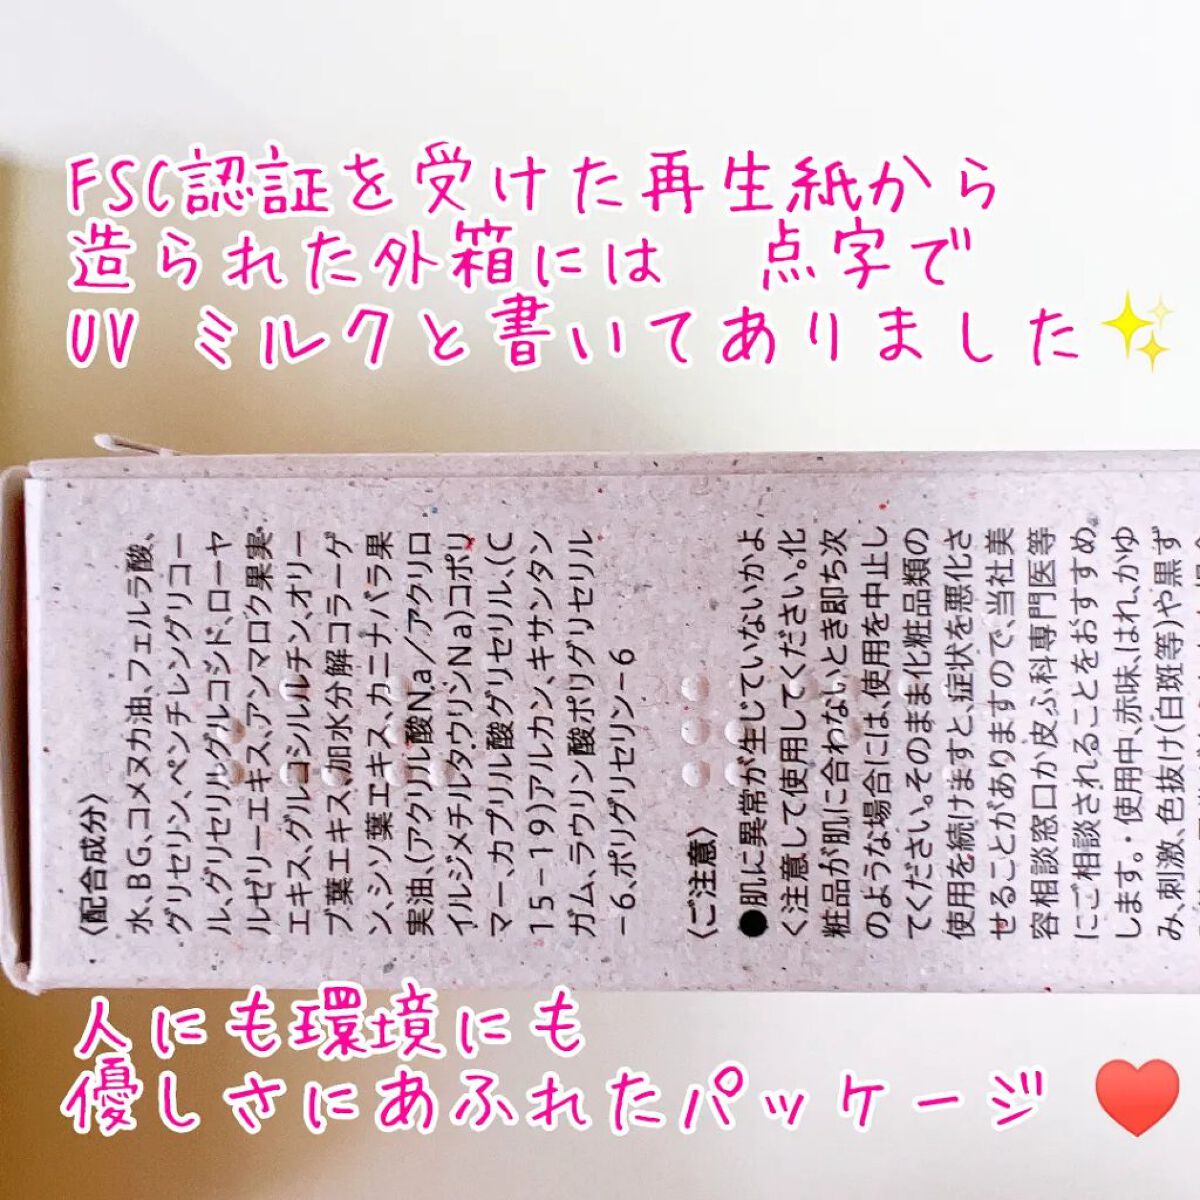 FSC認証を受けた再生紙から
造られた外箱には 点字で
UV ミルクと書いてありました✨
〈配合成分〉
水、BG、コメヌカ油、フェルラ酸、
グリセリン、ペンチレングリコー
ル、グリセリルグルコシド、ローヤ
ルゼリーエキス、アンマロク果実
エキス、グルコシルルチン、オリー
ブ葉エキス、加水分解コラーゲ
ン、シソ葉エキス、カニナバラ果
実油、(アクリル酸Na／アクリロ
イルジメチルタウリンNa)コポリ
マー、カプリル酸グリセリル、(C
15－19)アルカン、キサンタン
ガム、ラウリン酸ポリグリセリル
－6、ポリグリセリン－6
〈ご注意〉
●肌に異常が生じていないかよ
く注意して使用してください。化
粧品が肌に合わないとき即ち次
のような場合には、使用を中止し
てください。そのまま化粧品類の
使用を続けますと、症状を悪化さ
せることがありますので、当社美
容相談窓口か皮ふ科専門医等
にご相談されることをおすすめ
します。・使用中、赤味、はれ、かゆ
み、刺激、色抜け(白斑等)や黒ず
人にも環境にも
優しさにあふれたパッケージ ♥